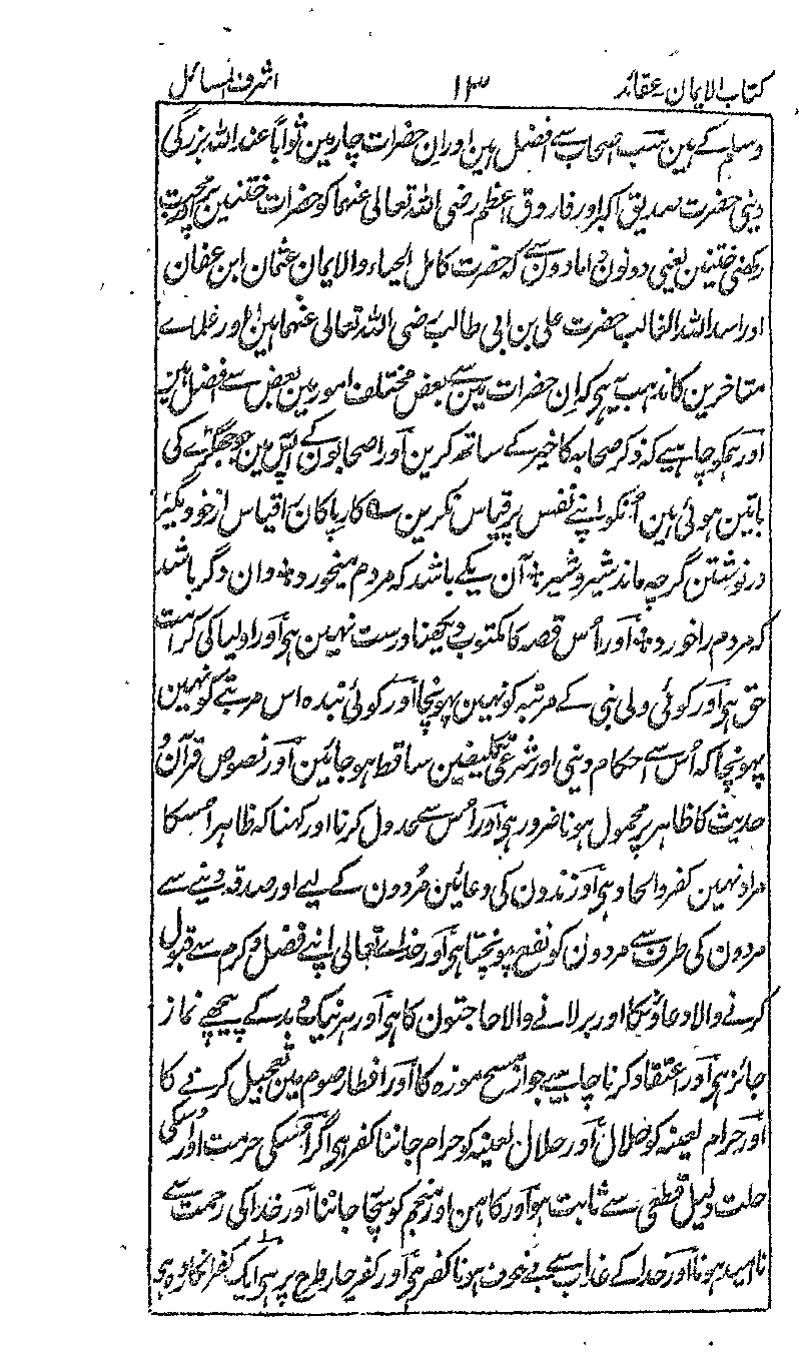 کتاب الایمان عقائد ۱۳ اشرف المسائل
وسلم کے ہین سب اصحاب سے افضل ہین اور ان حضرات چار مین ثواباً عند اللہ بزرگی
دینی حضرت صدیق اکبر اور فاروق اعظم رضی اللہ تعالی عنہما کو حضرات ختنین پر اور محبت
رکھنی ختنین یعنی دونون دامادون سے کہ حضرت کامل الحیاء والایمان عثمان ابن عفان
اور اسد اللہ الغالب حضرت علی بن ابی طالب رضی اللہ تعالی عنہما ہین اور علماے
متاخرین کا مذہب یہ ہی کہ ان حضرات مین سے بعض مختلف امور مین بعض سے افضل ہین
اور ہمکو چاہیے کہ ذکر صحابہ کا خیر کے ساتھ کرین اور اصحابون کے آپس مین جو جھگڑے کی
باتین ہوئی ہین اُنکو اپنے نفس پر قیاس نکرین ؎ کار پاکان را قیاس از خود مگیر
در نوشتن گرچہ ماند شیر و شیر ؛ آن یکے باشد کہ مردم میخورد ؛ وان دگر باشد
کہ مردم را خورد ؛ اور اُس قصہ کا مکتوب دیکھنا درست نہین ہی اور اولیا کی کرامت
حق ہی اور کوئی ولی نبی کے مرتبہ کو نہین پہونچا اور کوئی بندہ اس مرتبے کو نہین
پہونچا کہ اُس سے احکام دینی اور شرعی تکلیفین ساقط ہو جائین اور نصوص قرآن و
حدیث کا ظاہر پر محمول ہونا ضرور ہی اور اُس سے عدول کرنا اور کہنا کہ ظاہر اُسکا
مراد نہین کفر و الحاد ہی اور زندون کی دعائین مُردون کے لیے اور صدقہ دینے سے
مردون کی طرف سے مردون کو نفع پہونچتا ہی اور خداے تعالی اپنے فضل و کرم سے قبول
کرنے والا دعاؤن کا اور برلانے والا حاجتون کا ہی اور ہر نیک و بد کے پیچھے نماز
جائز ہی اور اعتقاد کرنا چاہیے جواز مسح موزہ کا اور افطار صوم مین تعجیل کرنے کا
اور حرام لعینہ کو حلال اور حلال لعینہ کو حرام جاننا کفر ہی اگر اُسکی حرمت اور اُسکی
حلت دلیل قطعی سے ثابت ہو اور کاہن اور منجم کو سچّا جاننا اور خدا کی رحمت سے
نا امید ہونا اور خدا کے عذاب سے بے خوف ہونا کفر ہی اور کفر چار طرح پر ہی ایک کفر انکار وہ ہی